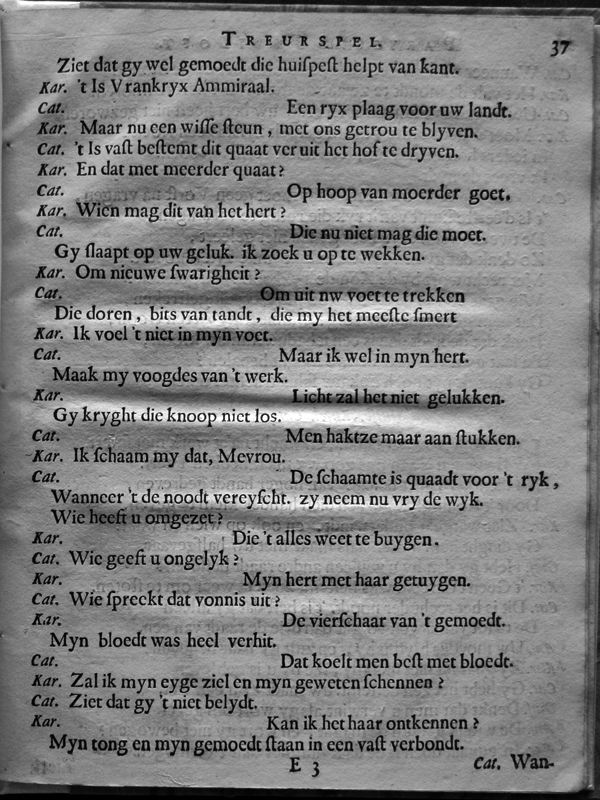 TREURSPEL. 37
Ziet dat gy wel gemoedt die huiſpeſt helpt van kant.
Kar. 't Is Vrankryx Ammiraal.
Cat. Een ryx plaag voor uw landt.
Kar. Maar nu een wiſſe ſteun, met ons getrou te blyven.
Cat. 't Is vaſt beſtemt dit quaat ver uit het hof te dryven.
Kar. En dat met meerder quaat?
Cat. Op hoop van moerder goet.
Kar. Wien mag dit van het hert?
Cat. Die nu niet mag die moet.
Gy ſlaapt op uw geluk. ik zoek u op te wekken.
Kar. Om nieuwe ſwarigheit?
Cat. Om uit nw voet te trekken
Die doren, bits van tandt, die my het meeſte ſmert
Kar. Ik voel 't niet in myn voet.
Cat. Maar ik wel in myn hert.
Maak my voogdes van 't werk.
Kar. Licht zal het niet gelukken.
Gy kryght die knoop niet los.
Cat. Men haktze maar aan ſtukken.
Kar. Ik ſchaam my dat, Mevrou.
Cat. De ſchaamte is quaadt voor 't ryk,
Wanneer 't de noodt vereyſcht. zy neem nu vry de wyk.
Wie heeft u omgezet?
Kar. Die 't alles weet te buygen.
Cat. Wie geeft u ongelyk?
Kar. Myn hert met haar getuygen.
Cat. Wie ſpreekt dat vonnis uit?
Kar. De vierſchaar van 't gemoedt.
Myn bloedt was heel verhit.
Cat. Dat koelt men beſt met bloedt.
Kar. Zal ik myn eyge ziel en myn geweten ſchennen?
Cat. Ziet dat gy 't niet belydt.
Kar. Kan ik het haar ontkennen?
Myn tong en myn gemoedt ſtaan in een vaſt verbondt.
E 3 Cat. Wan-